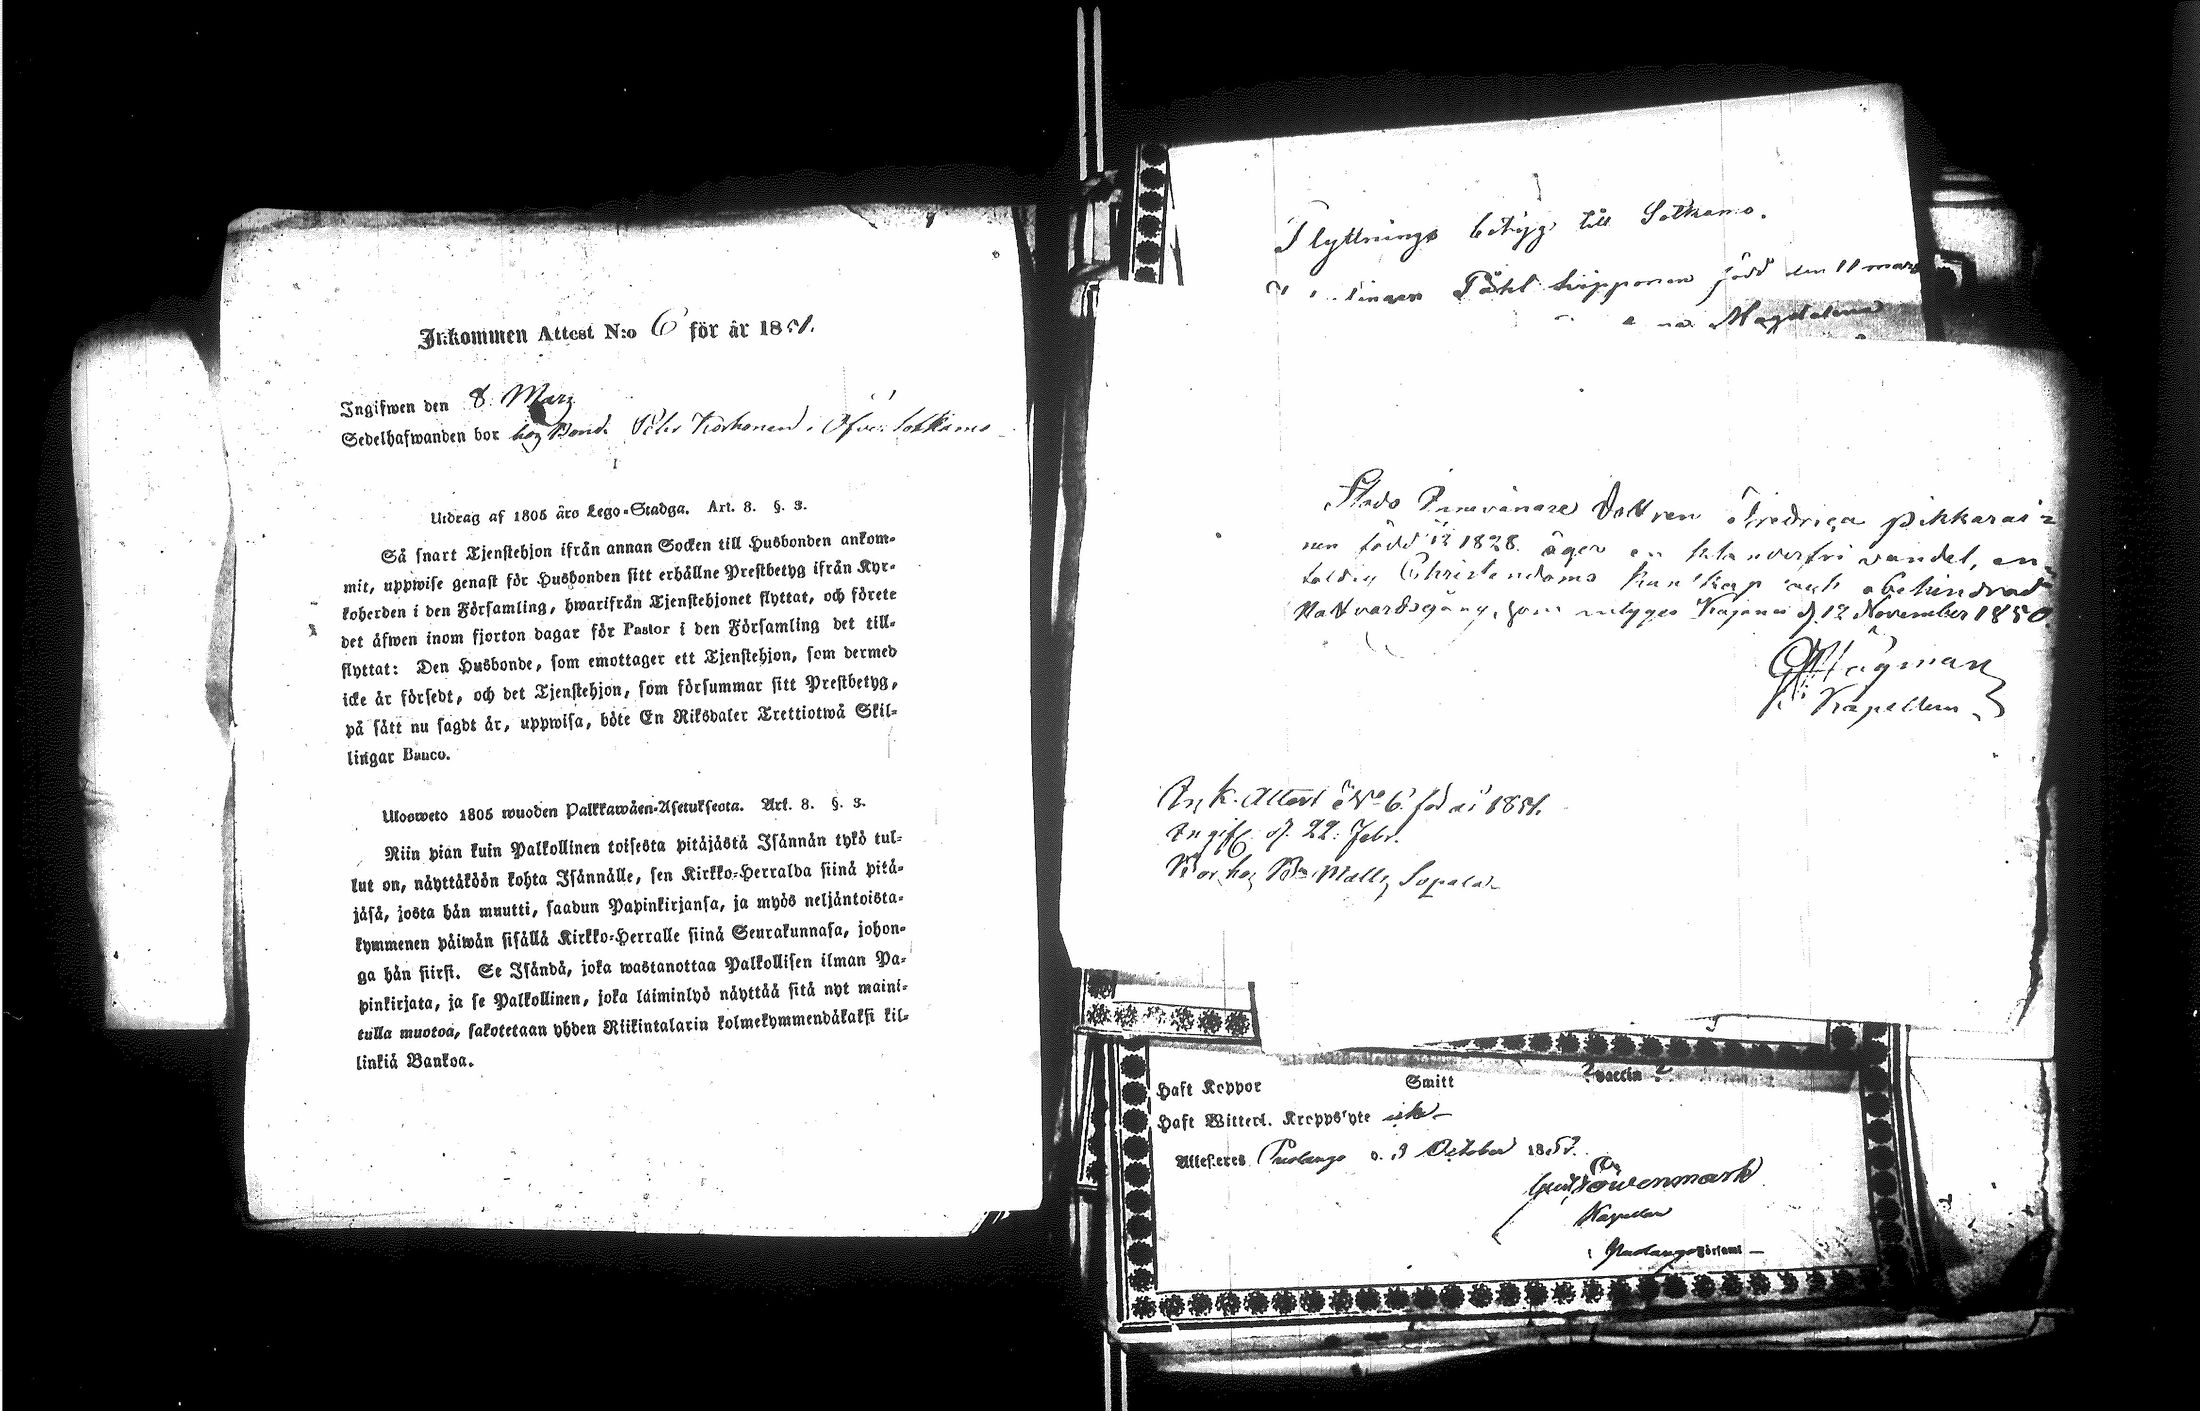 Inkommen Attest N:o 6 för år 1851.
Ingifwen den 8 Marz
Sedelhafwanden bor hoz Bond. Petter Korhonen i Öfve Sotkamo
Utdrag af 1805 års Lego-Stadga. Art. 8. §. 3.
Så snart Tjenstehjon ifrån annan Socken till Husbonden ankom-
mit, uppwise genast för Husbonden sitt erhållne Prestbetyg ifrån Kyr-
koherden i den Församling, hwarifrån Tjenstehjonet flyttat, och förete
det åfwen inom fjorton dagar för Pastor i den Församling det till-
flyttat: Den Husbonde, som emottager ett Tjenstehjon, som dermed
icke år försedt, och det Tjenstehjon, som försummar sitt Prestbetyg,
på sått nu sagdt år, uppwisa, böte En Riksdaler Trettiotwå Skil-
lingar Banco.
Ulosweto 1805 wuoden Palkkawåen-Asetuksesta. Art. 8. §. 3.
Niin pian kuin Palkollinen toisesta pitåjåstå Isånnån tykö tul-
lut on, nåyttåköön kohta Isånnålle, sen Kirkko-Herralda siinå pitå-
jåså, josta hån muutti, saadun Papinkirjansa, ja myös neljåntoista-
kymmenen påiwån sisållå Kirkko-Herralle siinå Seurakunnasa, johon-
ga hån siirsi. Se Isåndå, joka wastanottaa Palkollisen ilman Pa-
pinkirjata, ja se Palkollinen, joka låiminlyö nåyttåå sitå nyt maini-
tulla muotoa, sakotetaan yhden Riikintalarin kolmekymmendåkaksi kil-
linkiå Bankoa.
Flyttnings betyg till Sotkamo.
Påhl Kipponen född den 11 mars
Magdalena
Stads Innevånare Dottren Fredrica Pikkarai=
nen född 12 1828. äger en klanderfri vandel, en=
faldig Christendoms kunskap och obehindrad
Nattvardsgång, som intygges Kajana d. 12 November 1850.
Hägman
Kapellan
Ink. Attest No 6 för år 1851.
Ingif. d. 22. Febr.
Bor hoz Bn Matts Sopala
Haft Koppor Smitt Vaccin
Haft Witterl. Kroppslyte icke
Attesteras Puolango d. 3 October 1853.
Löwenmark
Kapellan
i Puolango Församl